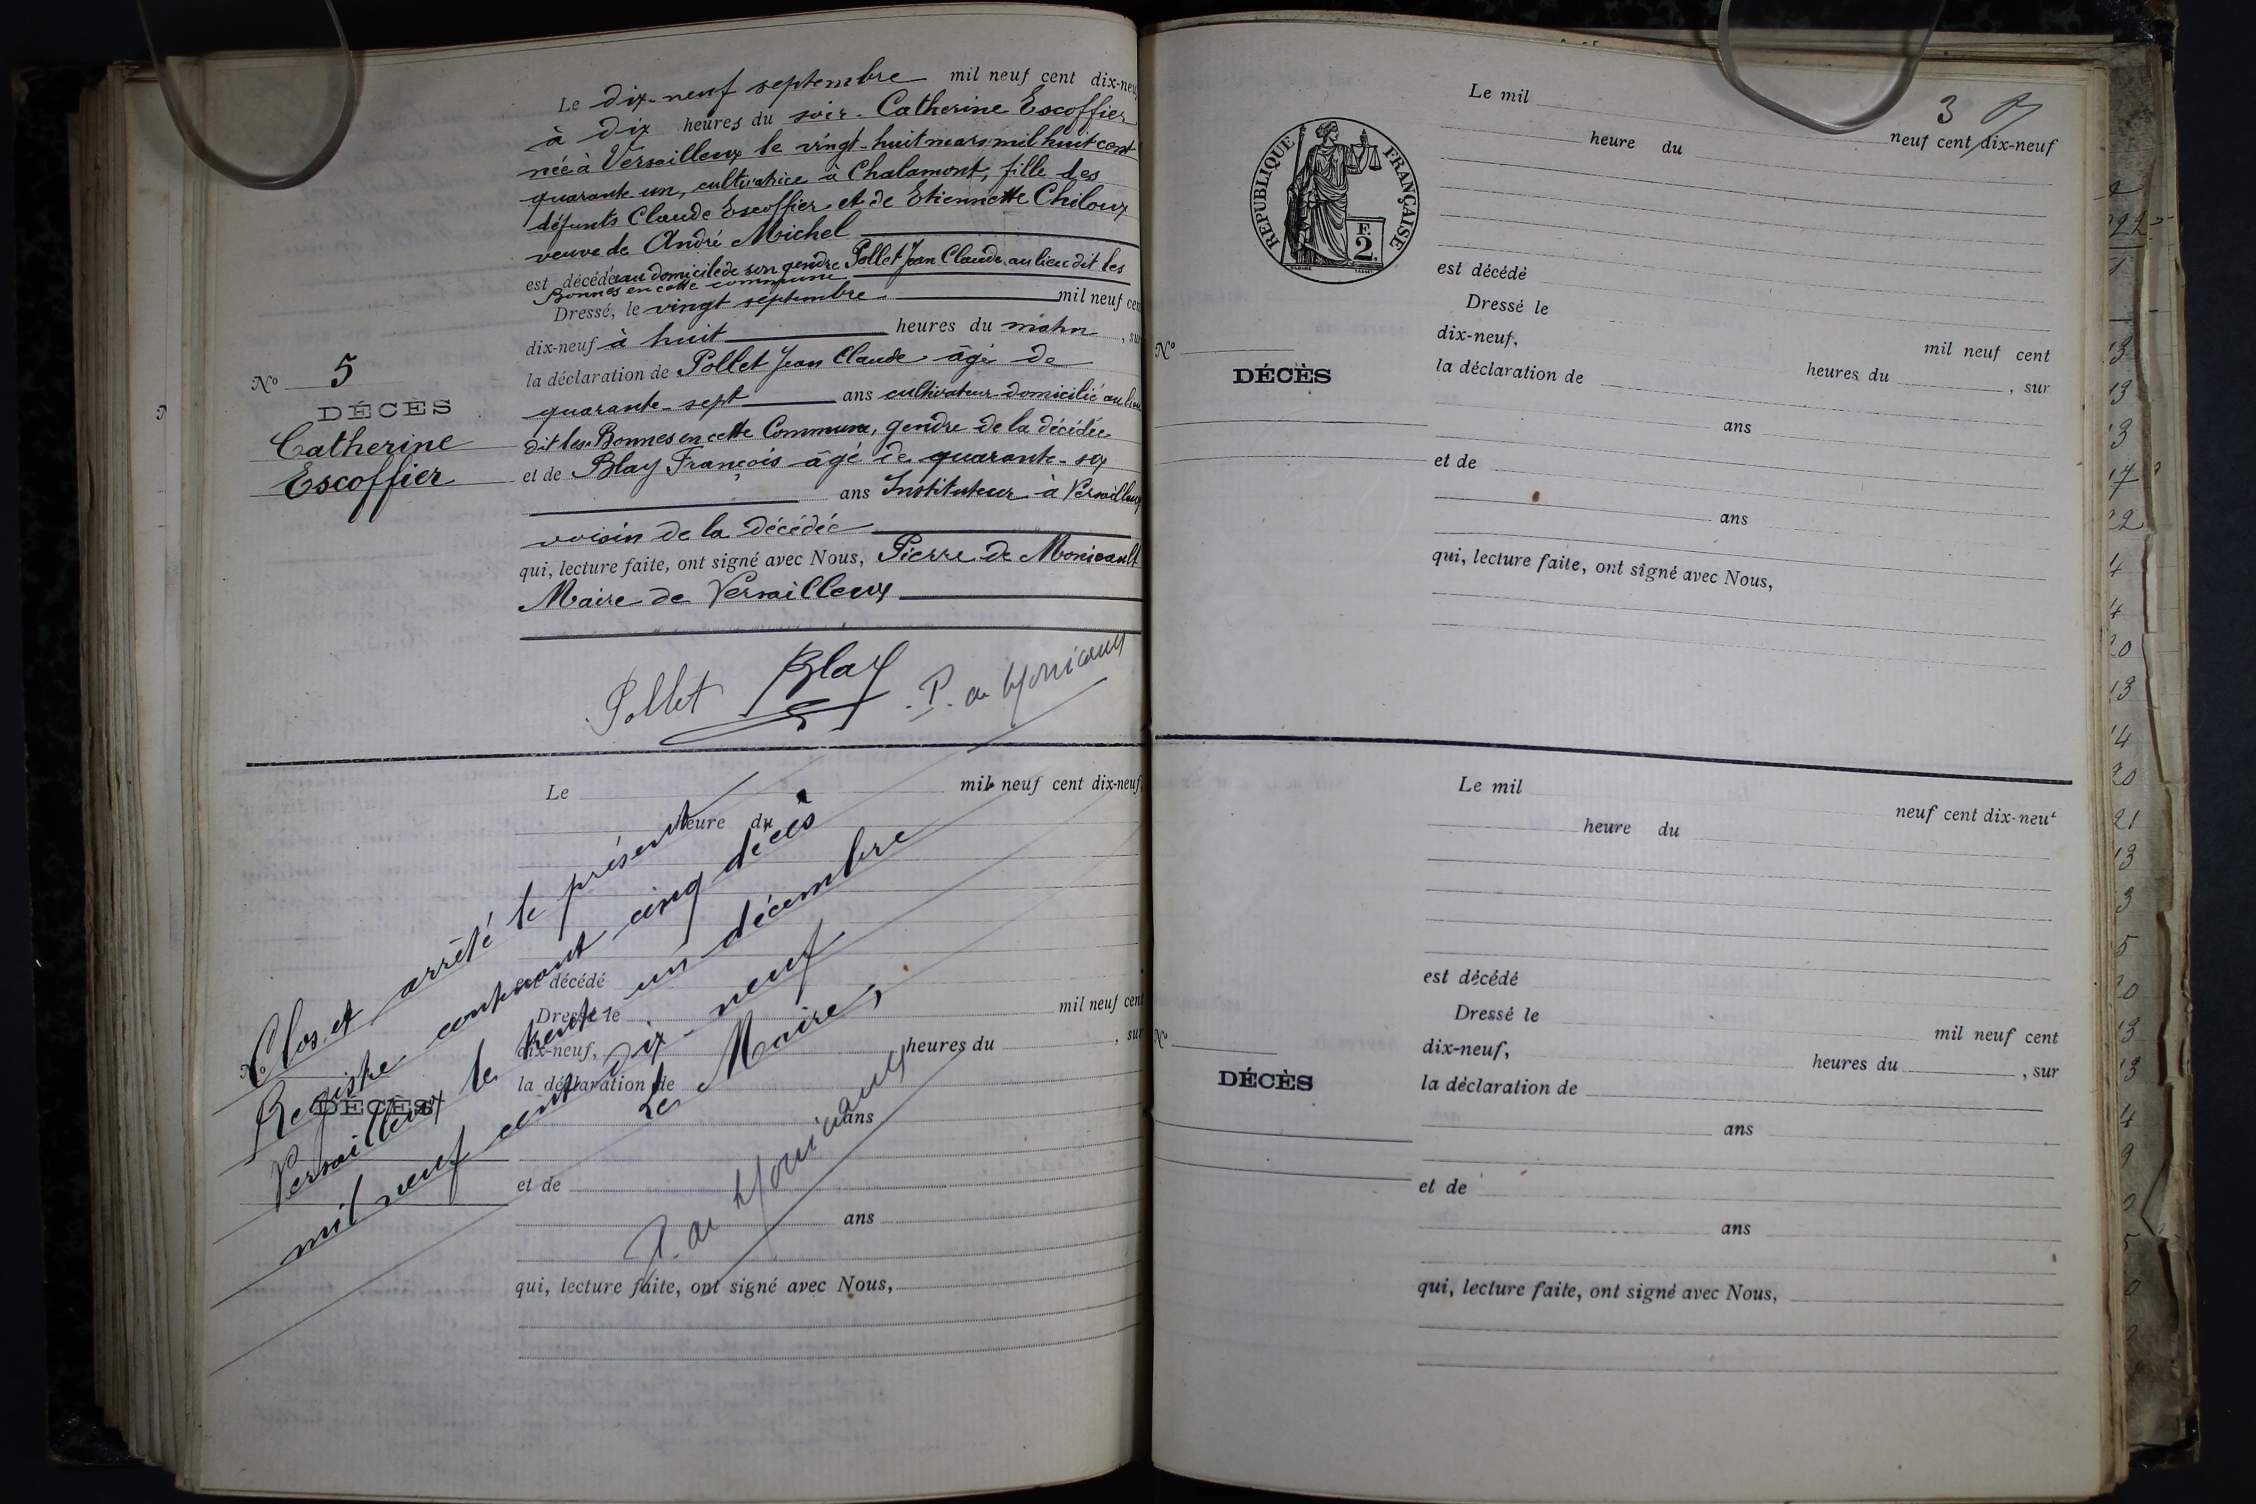 Le dix-neuf septembre mil neuf cent dix-neuf
à dix heures du soir. Catherine Escoffier
née à Versailleux le vingt-huit mars mil huit cent
quarante un, cultivatrice à Chalamont, fille des
défunts Claude Escoffier et de Etiennette Chiloux
veuve de André Michel
est décédée au domicile de son gendre Pollet Jean Claude au lieu dit les
Bonnes en cette commune
Dressé, le vingt septembre mil neuf cent
dix-neuf à huit heures du matin, sur
la déclaration de Pollet Jean Claude âgé de
quarante-sept ans cultivateur domicilié au lieu
dit les Bonnes en cette Commune, gendre de la décédée
et de Blay François âgé de quarante-six
ans Instituteur à Versailleux
voisin de la décédée
qui, lecture faite, ont signé avec Nous, Pierre de Monicault
Maire de Versailleux
Nº 5
DÉCÈS
Catherine
Escoffier
Pollet Blay P. de Monicault
Le mil neuf cent dix-neuf,
heure du
est décédé
Dressé le mil neuf cent
dix-neuf, heures du , sur
la déclaration de
ans
et de
ans
qui, lecture faite, ont signé avec Nous,
Nº
DÉCÈS
Clos et arrêté le présent
Registre contenant cinq décès à
Versailleux le trente un décembre
mil neuf cent dix-neuf
Le Maire,
P. de Monicault
3
REPUBLIQUE FRANÇAISE
F.
2.
Le mil
neuf cent dix-neuf
heure du
est décédé
Dressé le
mil neuf cent
dix-neuf,
heures du , sur
la déclaration de
ans
et de
ans
qui, lecture faite, ont signé avec Nous,
Nº
DÉCÈS
Le mil
neuf cent dix-neuf
heure du
est décédé
Dressé le
mil neuf cent
dix-neuf,
heures du , sur
la déclaration de
ans
et de
ans
qui, lecture faite, ont signé avec Nous,
Nº
DÉCÈS